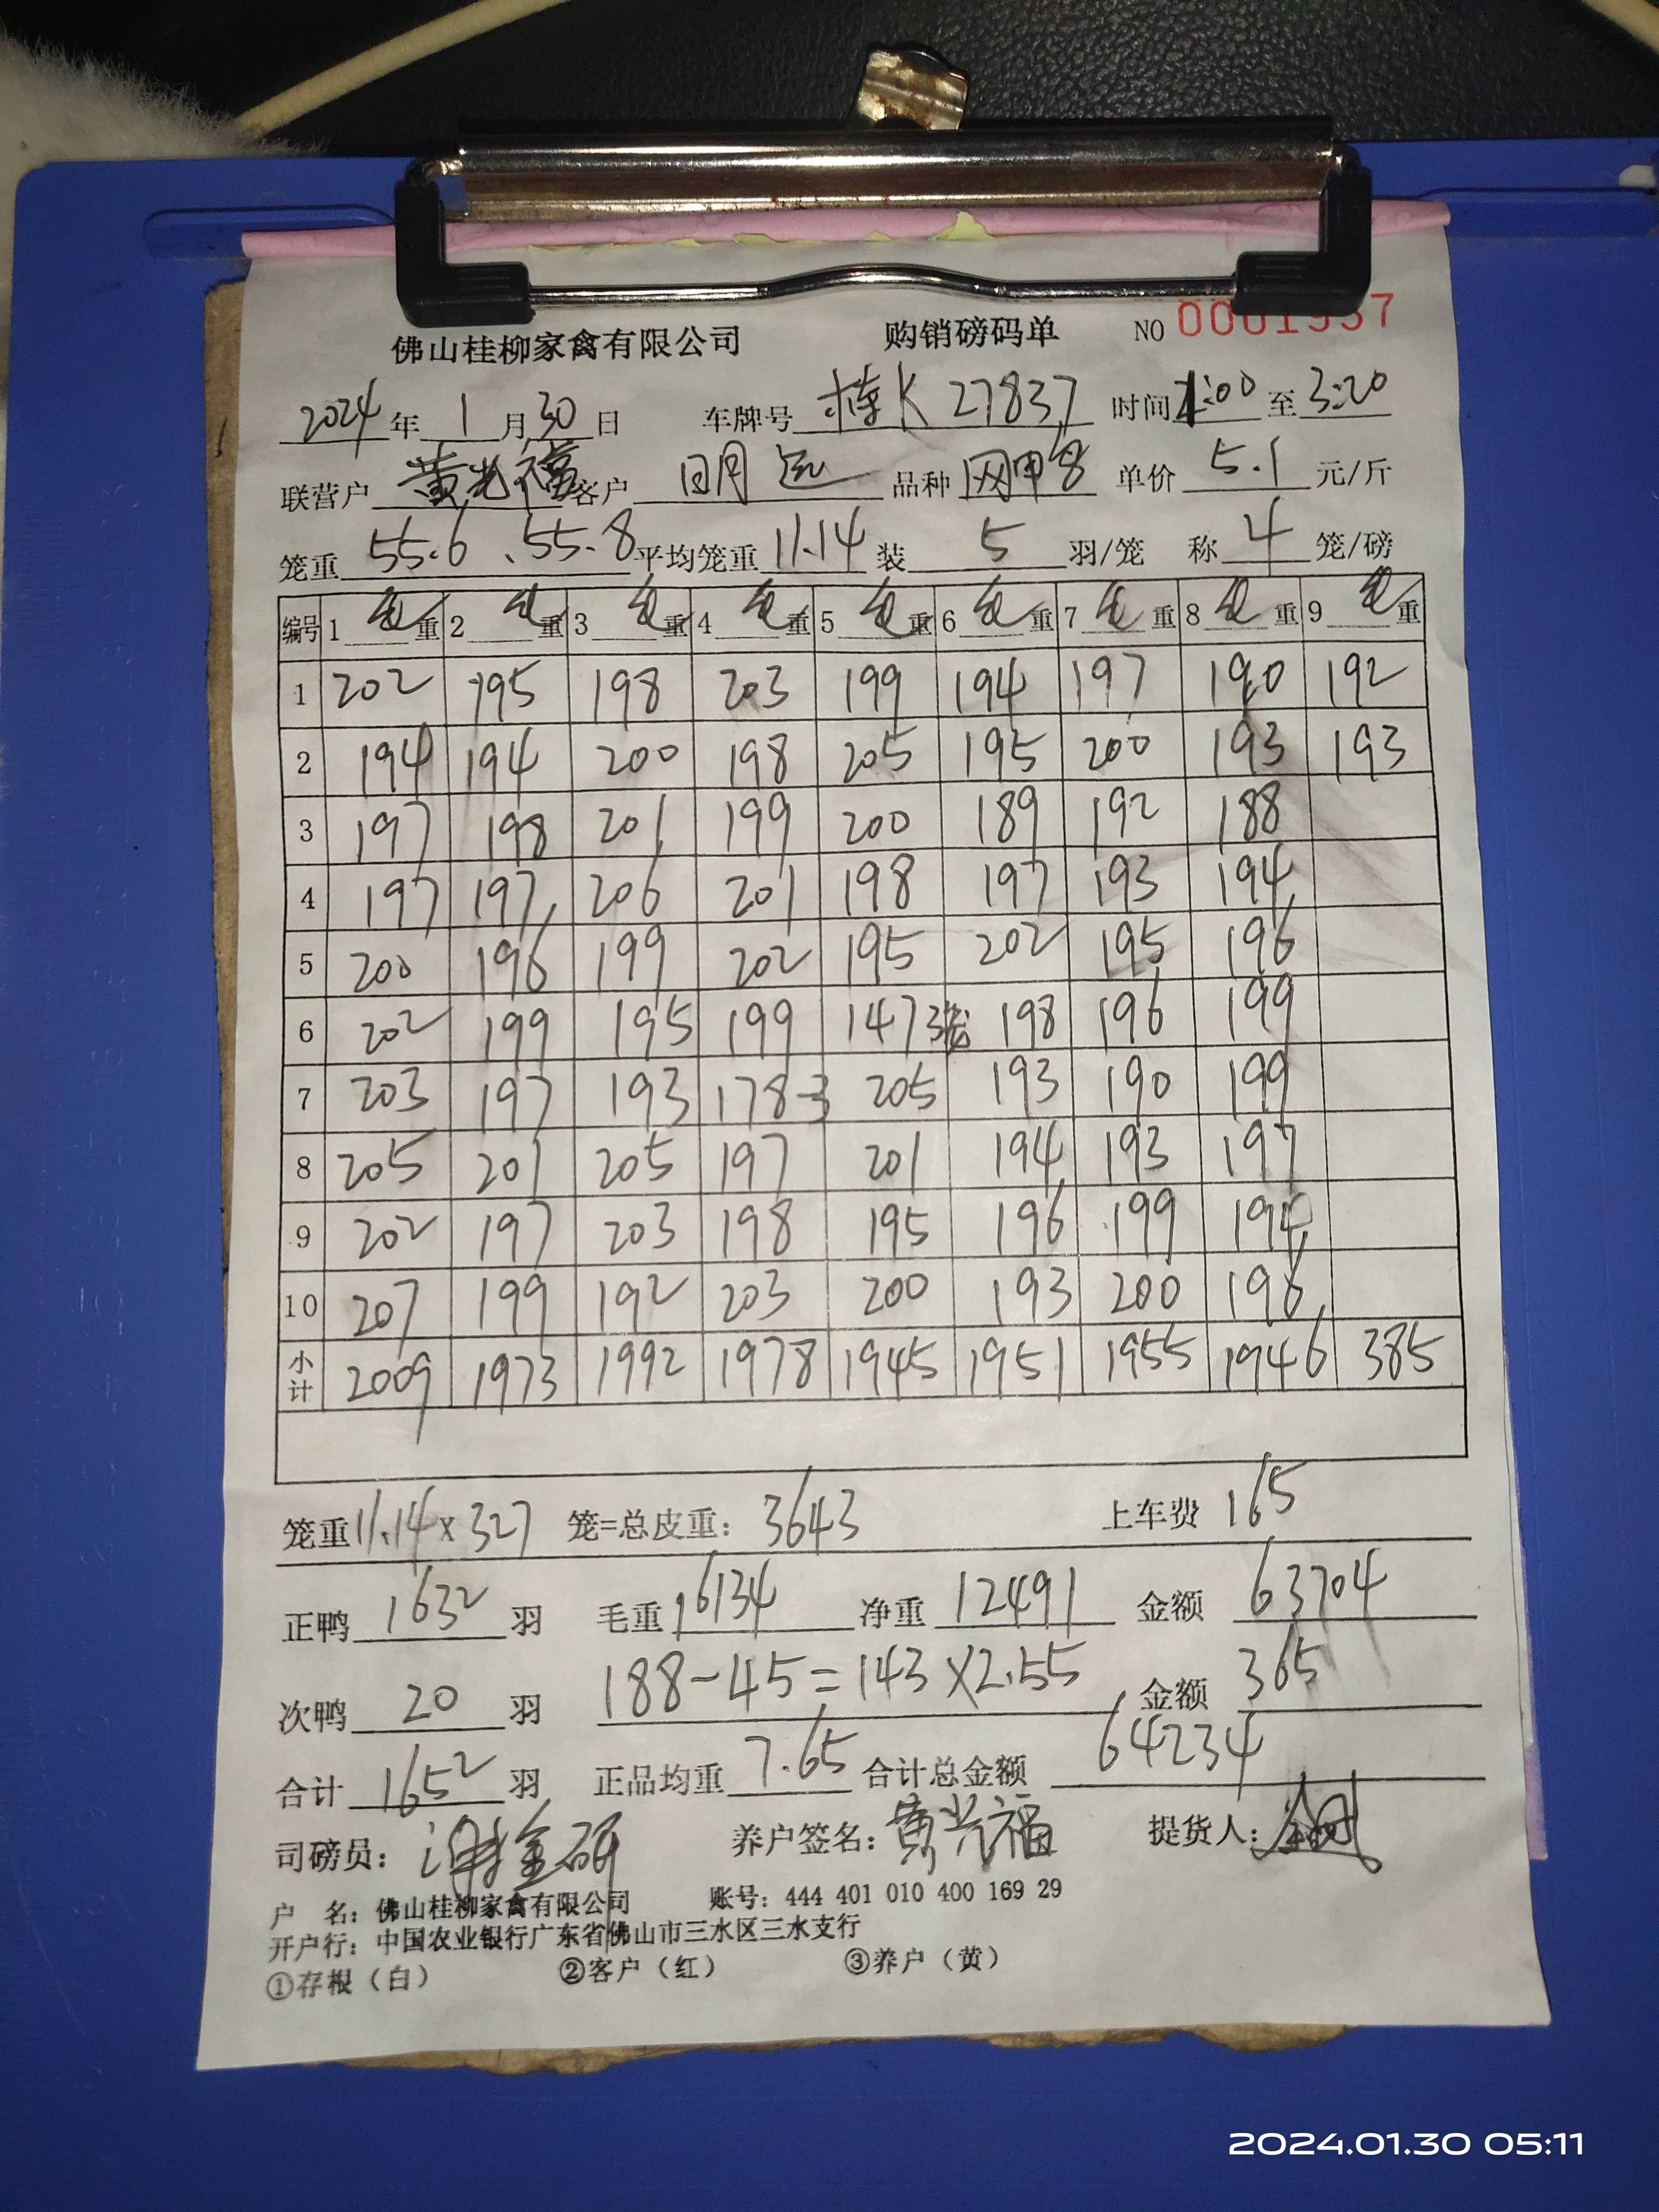 佛山桂柳家禽有限公司 购销磅码单 NO 0001337
2024年1月30日 车牌号 K 27837 时间 1:00 至 3:20
联营户 黄光福 客户 明 远 品种 网甲 单价 5.1 元/斤
笼重 55.6 、55.8 平均笼重 11.14 装 5 羽/笼 称 4 笼/磅
编号 1 重 2 重 3 重 4 重 5 重 6 重 7 重 8 重 9 重
1 202 195 198 203 199 194 197 190 192
2 194 194 200 198 205 195 200 193 193
3 197 198 201 199 200 189 192 188
4 197 197 206 201 198 197 193 194
5 200 196 199 202 195 202 195 196
6 202 199 195 199 147 3 198 196 199
7 203 197 193 178-3 205 193 190 199
8 205 201 205 197 201 194 193 197
9 202 197 203 198 195 196 199 194
10 207 199 192 203 200 193 200 196
小计 2009 1973 1992 1978 1945 1951 1955 1946 385
笼重 11.14 x 327 笼=总皮重: 3643 上车费 165
正鸭 1632 羽 毛重 16134 净重 12491 金额 63704
次鸭 20 羽 188-45=143×2.55 金额 365
合计 1652 羽 正品均重 7.65 合计总金额 64234
司磅员: 养户签名: 黄光福 提货人:
户 名: 佛山桂柳家禽有限公司 账号: 444 401 010 400 169 29
开户行: 中国农业银行广东省佛山市三水区三水支行
①存根（白） ②客户（红） ③养户（黄）
2024.01.30 05:11